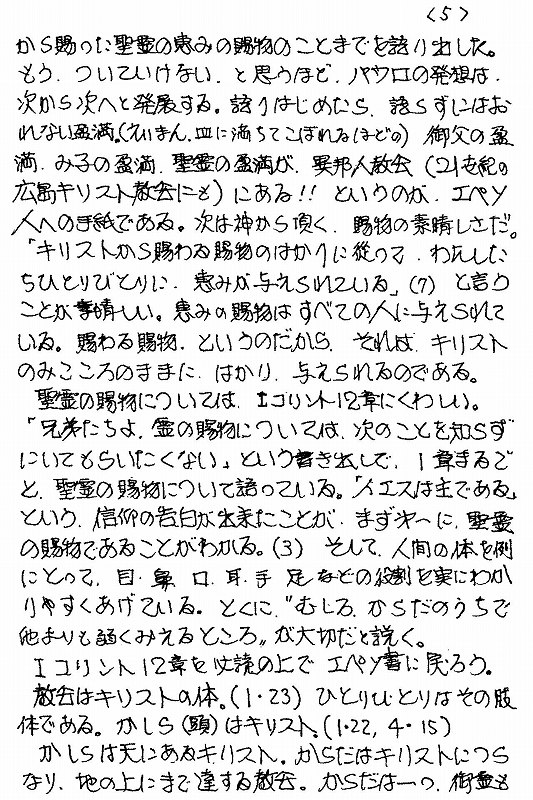 <5>
から賜った聖霊の恵みの賜物のことまでを語り出した。
もう、ついていけない、と思うほど、パウロの発想は、
次から次へと発展する。語りはじめたら、語らずにはお
れない盈満。(えいまん、皿に満ちてこぼれるほどの) 御父の盈
満、み子の盈満、聖霊の盈満が、異邦人教会 (21世紀の
広島キリスト教会にも) にある!! というのが、エペソ
人への手紙である。次は神から頂く、賜物の素晴しさだ。
「キリストから賜わる賜物のはかりに従って、わたした
ちひとりびとりに、恵みが与えられている」(7) と言う
ことが素晴しい。恵みの賜物はすべての人に与えられて
いる。賜わる賜物、というのだから、それは、キリスト
のみこころのままに、はかり、与えられるのである。
聖霊の賜物については、Iコリント12章にくわしい。
「兄弟たちよ、霊の賜物については、次のことを知らず
にいてもらいたくない」という書き出しで、1章まるご
と、聖霊の賜物について語っている。「イエスは主である」
という、信仰の告白が出来たことが、まず才一に、聖霊
の賜物であることがわかる。(3) そして、人間の体を例
にとって、目・鼻、口、耳、手、足などの役割を実にわか
りやすくあげている。とくに、"むしろ、からだのうちで
他よりも弱くみえるところ"が大切だと説く。
Iコリント12章を拝読の上で エペソ書に戻ろう。
教会はキリストの体。(1・23) ひとりひとりはその肢
体である。かしら(頭)はキリスト。(1・22, 4・15)
かしらは天にあるキリスト。からだはキリストにつら
なり、地の上にまで達する教会。からだは一つ、御霊も